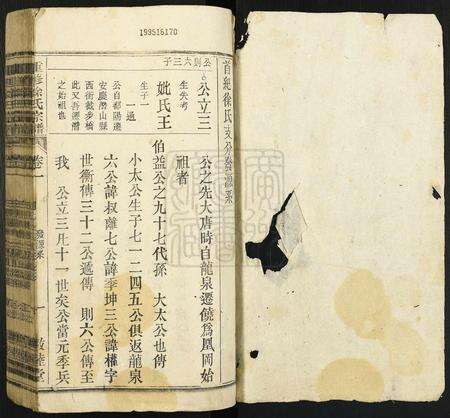 193516170
首絶徐氏支分發源系
公則六三子
公立三
生失考
妣氏王
生子一
一通
公自鄱陽遷
安慶潛山縣
西街截步橋
此又吾遷潛
之始祖也
公之先大唐時自龍泉遷饒爲凰岡始
祖者
伯益公之九十七代孫 大太公也傳
小太公生子七一二四五公俱返龍泉
六公諱叔離七公諱季坤三公諱權字
世衡傳三十二公遞傳 則六公傳至
我 公立三凡十一世矣公當元季兵
重修徐氏宗譜
卷一
發源系
一